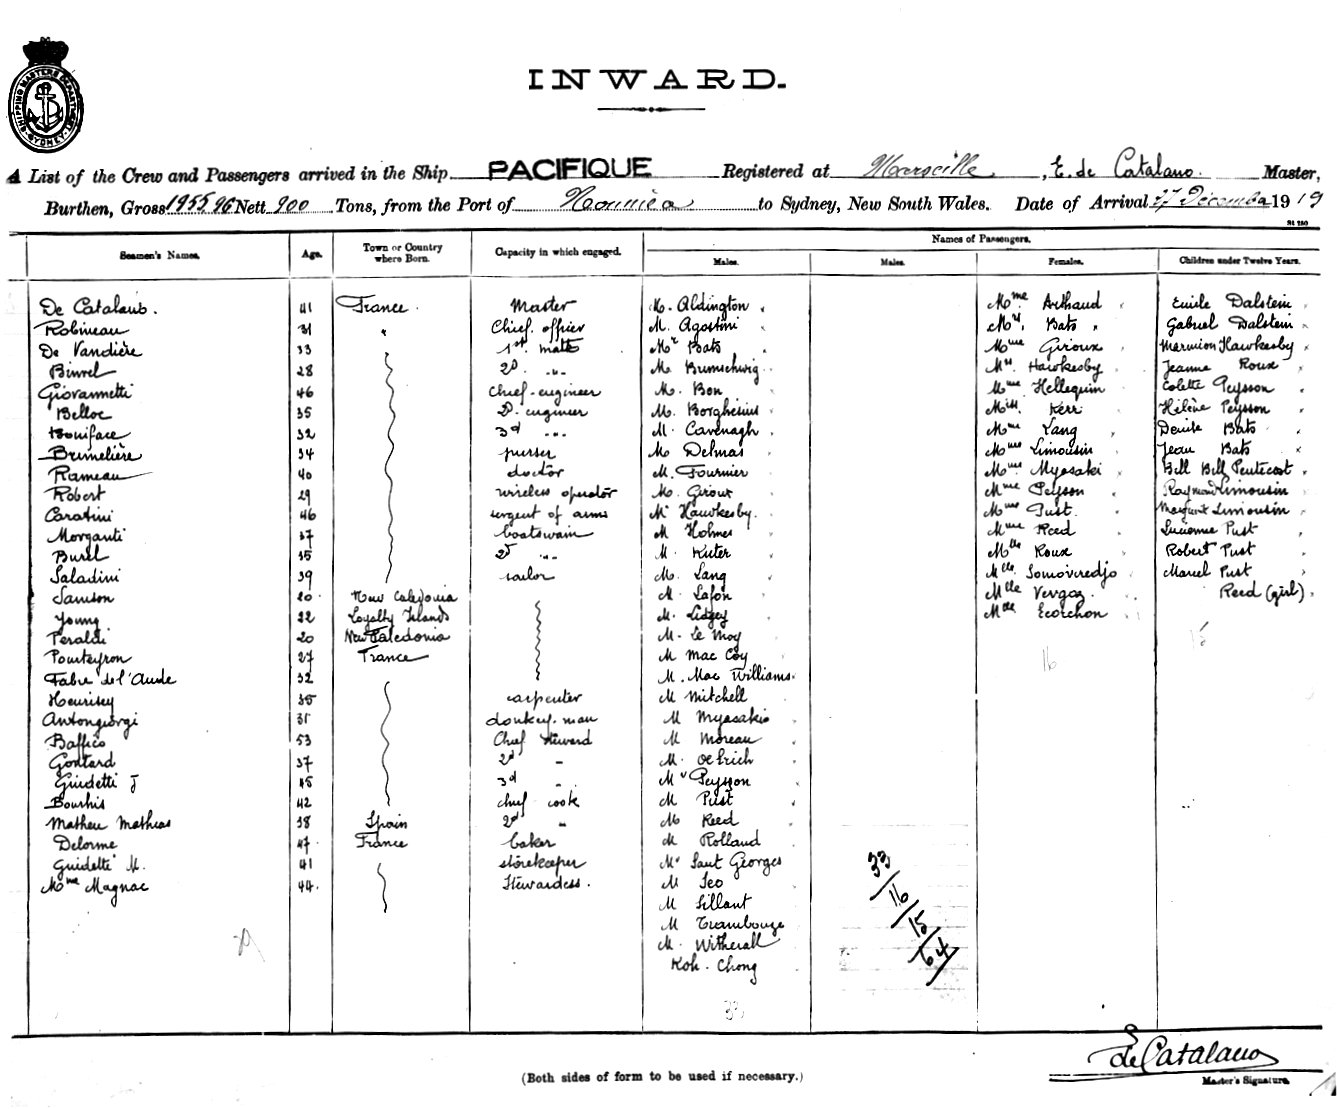 SHIPPING MASTERS DEPARTMENT SYDNEY
INWARD.
A List of the Crew and Passengers arrived in the Ship PACIFIQUE Registered at Marseille, E. de Catalano Master,
Burthen, Gross 1955 96 Nett 900 Tons, from the Port of Noumea to Sydney, New South Wales. Date of Arrival 27 Décembre 1919
Names of Passengers.
Seamen's Names. Age. Town or Country where Born. Capacity in which engaged. Males. Males. Females. Children under Twelve Years.
De Catalano. 41 France. Master M. Aldington Mme Arthaud Emile Dalstein
Robineau 31 " Chief officer M. Agostini Mrs Bats Gabriel Dalstein
De Vandière 33 1st mate Mr Bats Mme Giroux Hawkesby
28 2d " M. Brunschwig Mrs Hawkesby Jeanne Roux
Giovannetti 46 Chief-engineer M. Bon Mme Hellequin Colette Peysson
Belloc 35 2d engineer M. Borghesius Miss Kerr Hélène Peysson
Boniface 32 3rd " M. Cavenagh Mme Lang Denise Bats
Brunelière 34 purser M. Delmas Mme Limousin Jean Bats
Rameau 40 doctor M. Fournier Mme Myasaki Bill Bell Pentecost
Robert 29 wireless operator M. Giroux Mme Peysson Raymond Limousin
Caratini 46 sergent of arms Mr Hawkesby Mme Pust Margaret Limousin
Morganti 37 boatswain M Holmes Mme Reed Lucienne Pust
Burel 35 2d " M. Kuter Mlle Roux Robert Pust
Saladini 39 sailor M. Lang Mlle Somoveredjo Marcel Pust
Samson 20 New Caledonia M. Lafon Mlle Vergoz Reed (girl)
Young 22 Loyalty Islands M. Lidgey Mlle Ecorchon
Peraldi 20 New Caledonia M. Le Moy 15
Pourteyron 27 France M Mac Coy 16
Fabre de l'Aude 32 M. Mac Williams
35 carpenter M Mitchell
Antongiorgi 31 donkey-man M Myasakio
Baffico 53 Chief steward M Moreau
Gontard 37 2d " M. Oetrich
Guidetti J 45 3rd " Mr Peysson
Bourhis 42 chief cook M Pust
Matheu Mathias 38 Spain 2d " M Reed
Delorme 47 France baker M Rolland
Guidetti M. 41 storekeeper Mr Saut Georges
Mme Magnac 44 Stewardess. M Seo
M Sillant
M Trambouze
M. Witherall
Koh. Chong
33
33/16/15/64
29
E de Catalano
(Both sides of form to be used if necessary.)
Master's Signature.